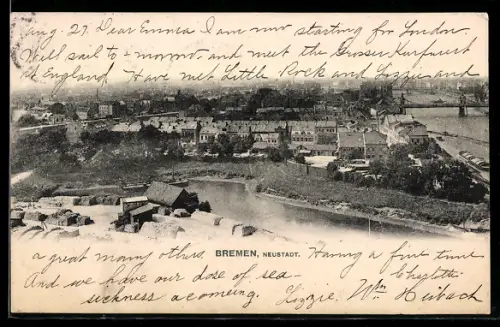 Aug. 27. Dear Emma I am now starting for London.
Will sail to-morrow and meet the Grosser Kurfuerst
at England Have met Little Rock and Lizzie and
a great many others.
BREMEN, NEUSTADT.
Having a fine time
And we have our dose of sea-
sickness a comeing.
Lizzie. Wm Heibach